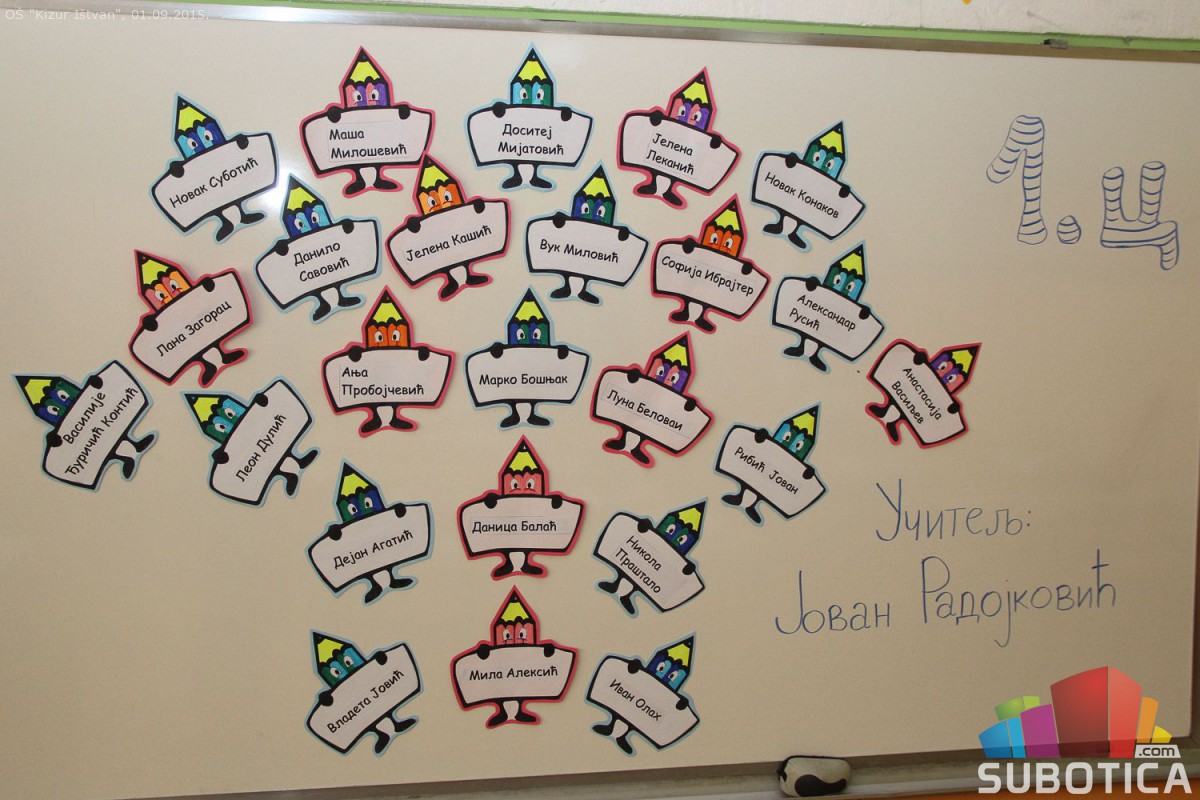 OŠ "Kizur Ištvan", 01.09.2015.
Маша
Милошевић
Доситеј
Мијатовић
Јелена
Леканић
Новак Суботић
Новак Конаков
1.ц
Данило
Савовић
Јелена Кашић
Вук Миловић
Софија Ибрајтер
Александар
Русић
Лана Загорац
Ања
Пробојчевић
Марко Бошњак
Луна Беловаи
Анастасија
Васиљев
Василије
Ђуричић Контић
Леон Дулић
Рибић Јован
Дејан Агатић
Даница Балаћ
Никола
Праштало
Учитељ:
Јован Радојковић
Владета Јовић
Мила Алексић
Иван Олах
.com
SUBOTICA